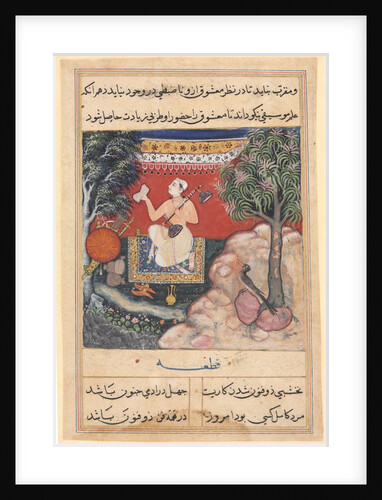 و مقرب نباید تا در نظر معشوق ازو ناضبطی در وجود نیاید دهم آنکه
علم موسیقی نیکو داند تا معشوق را حضور او طربی زیادت حاصل شود
قطعه
نخشبی ذوفنون شدن کاریست جهل در آدمی جنون باشد
مرد کامل کسی بود امروز ذوفنون باشد